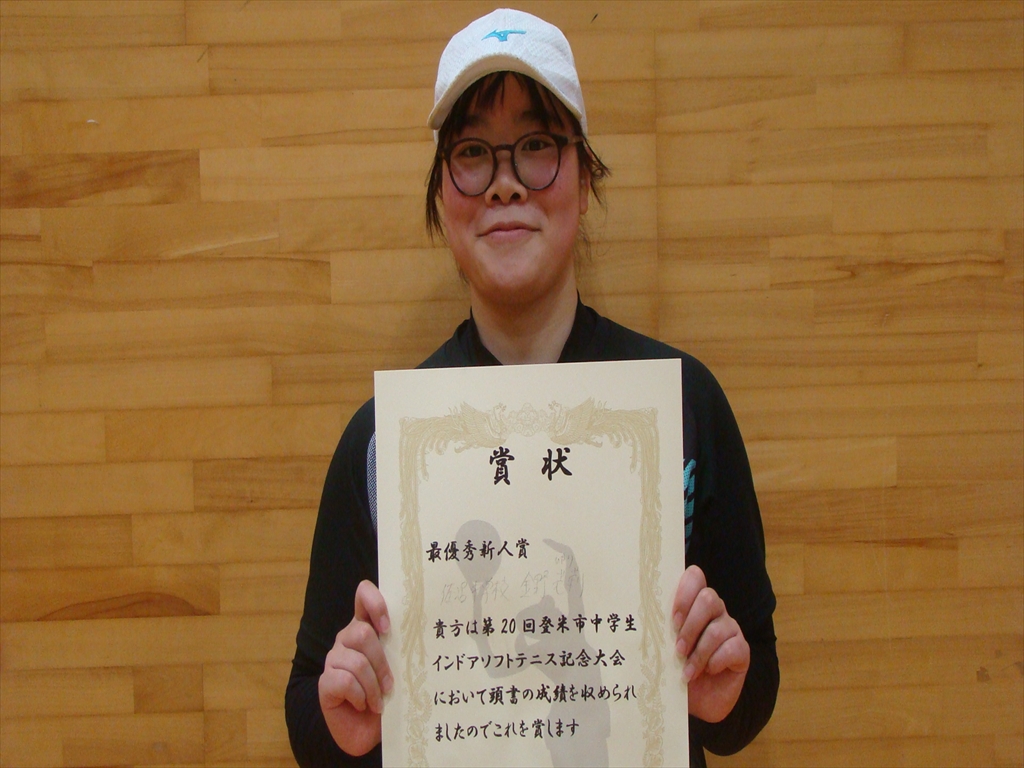 賞状
最優秀新人賞
貴方は第20回登米市中学生
インドアソフトテニス記念大会
において頭書の成績を収められ
ましたのでこれを賞します